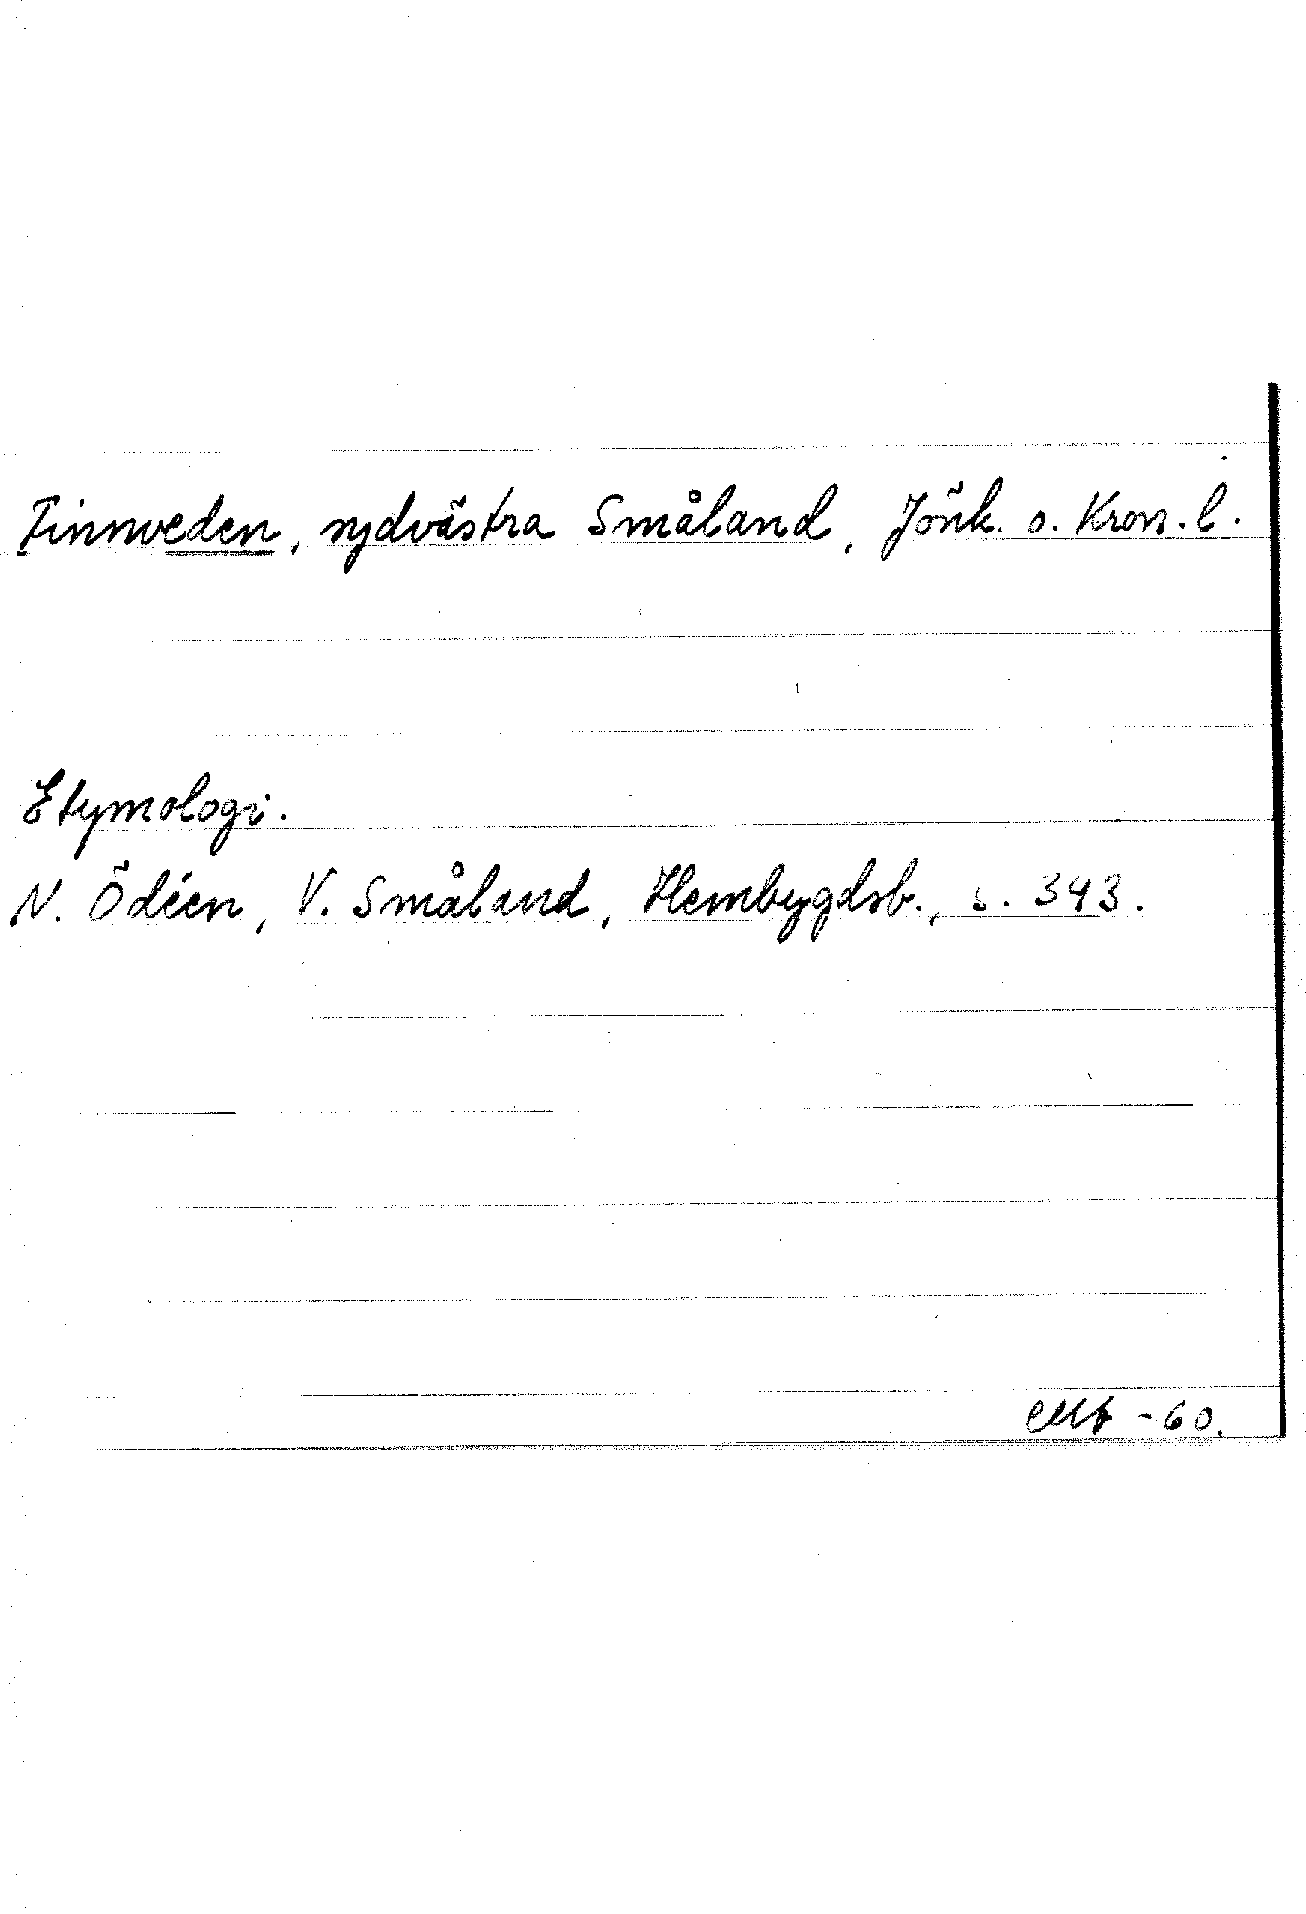 Finnveden, sydvästra Småland, Jönk. o. Kron. l.
Etymologi.
N. Ödéen, V. Småland, Hembygdsb., s. 343.
-60.